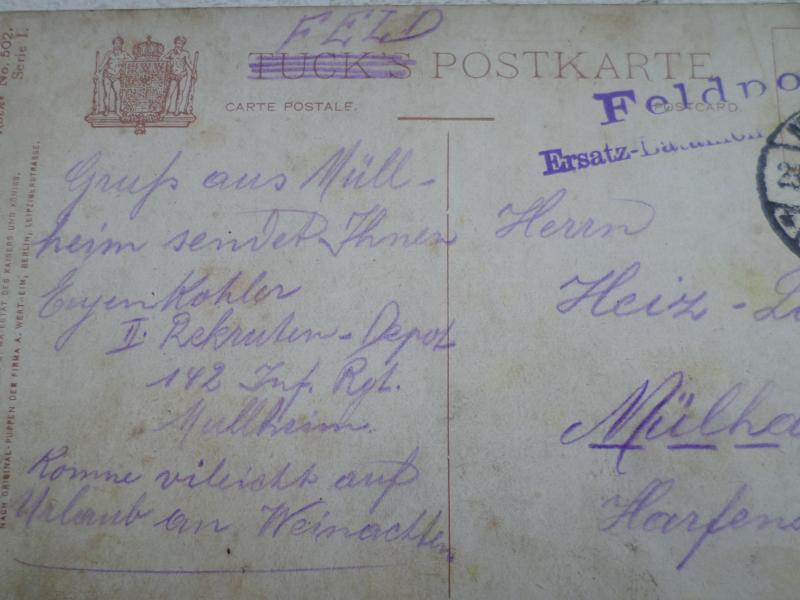 No. 502.
Serie I.
FELD
TUCK'S POSTKARTE
CARTE POSTALE.
POSTCARD.
Feldpo
Ersatz-Bataillon
Gruß aus Müll-
heim sendet Ihnen
Eugen Kohler
II. Rekruten-Depot
142 Inf. Rgt.
Mullheim
Komme vileicht auf
Urlaub an Weinachten
Herrn
Heiz-
Mülha
Harfens
NACH ORIGINAL-PUPPEN DER FIRMA A. WERTHEIM, BERLIN, LEIPZIGERSTRASSE.
MAJESTÄT DES KAISERS UND KÖNIGS.